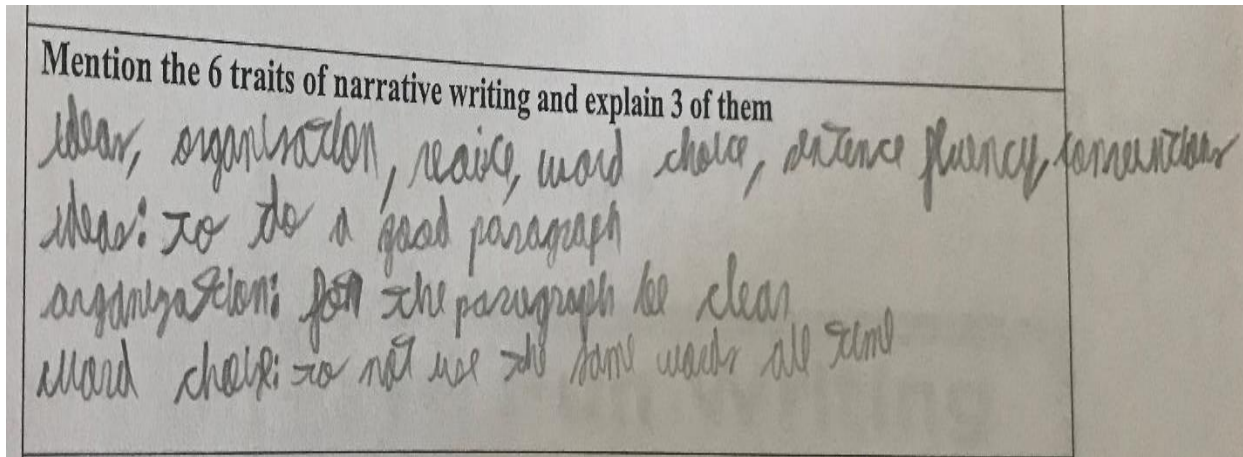 Mention the 6 traits of narrative writing and explain 3 of them
ideas, organisation, voice, word choice, sentence fluency, conventions
ideas: to do a good paragraph
organization: for the paragraph be clear
word choice: to not use the same words all time